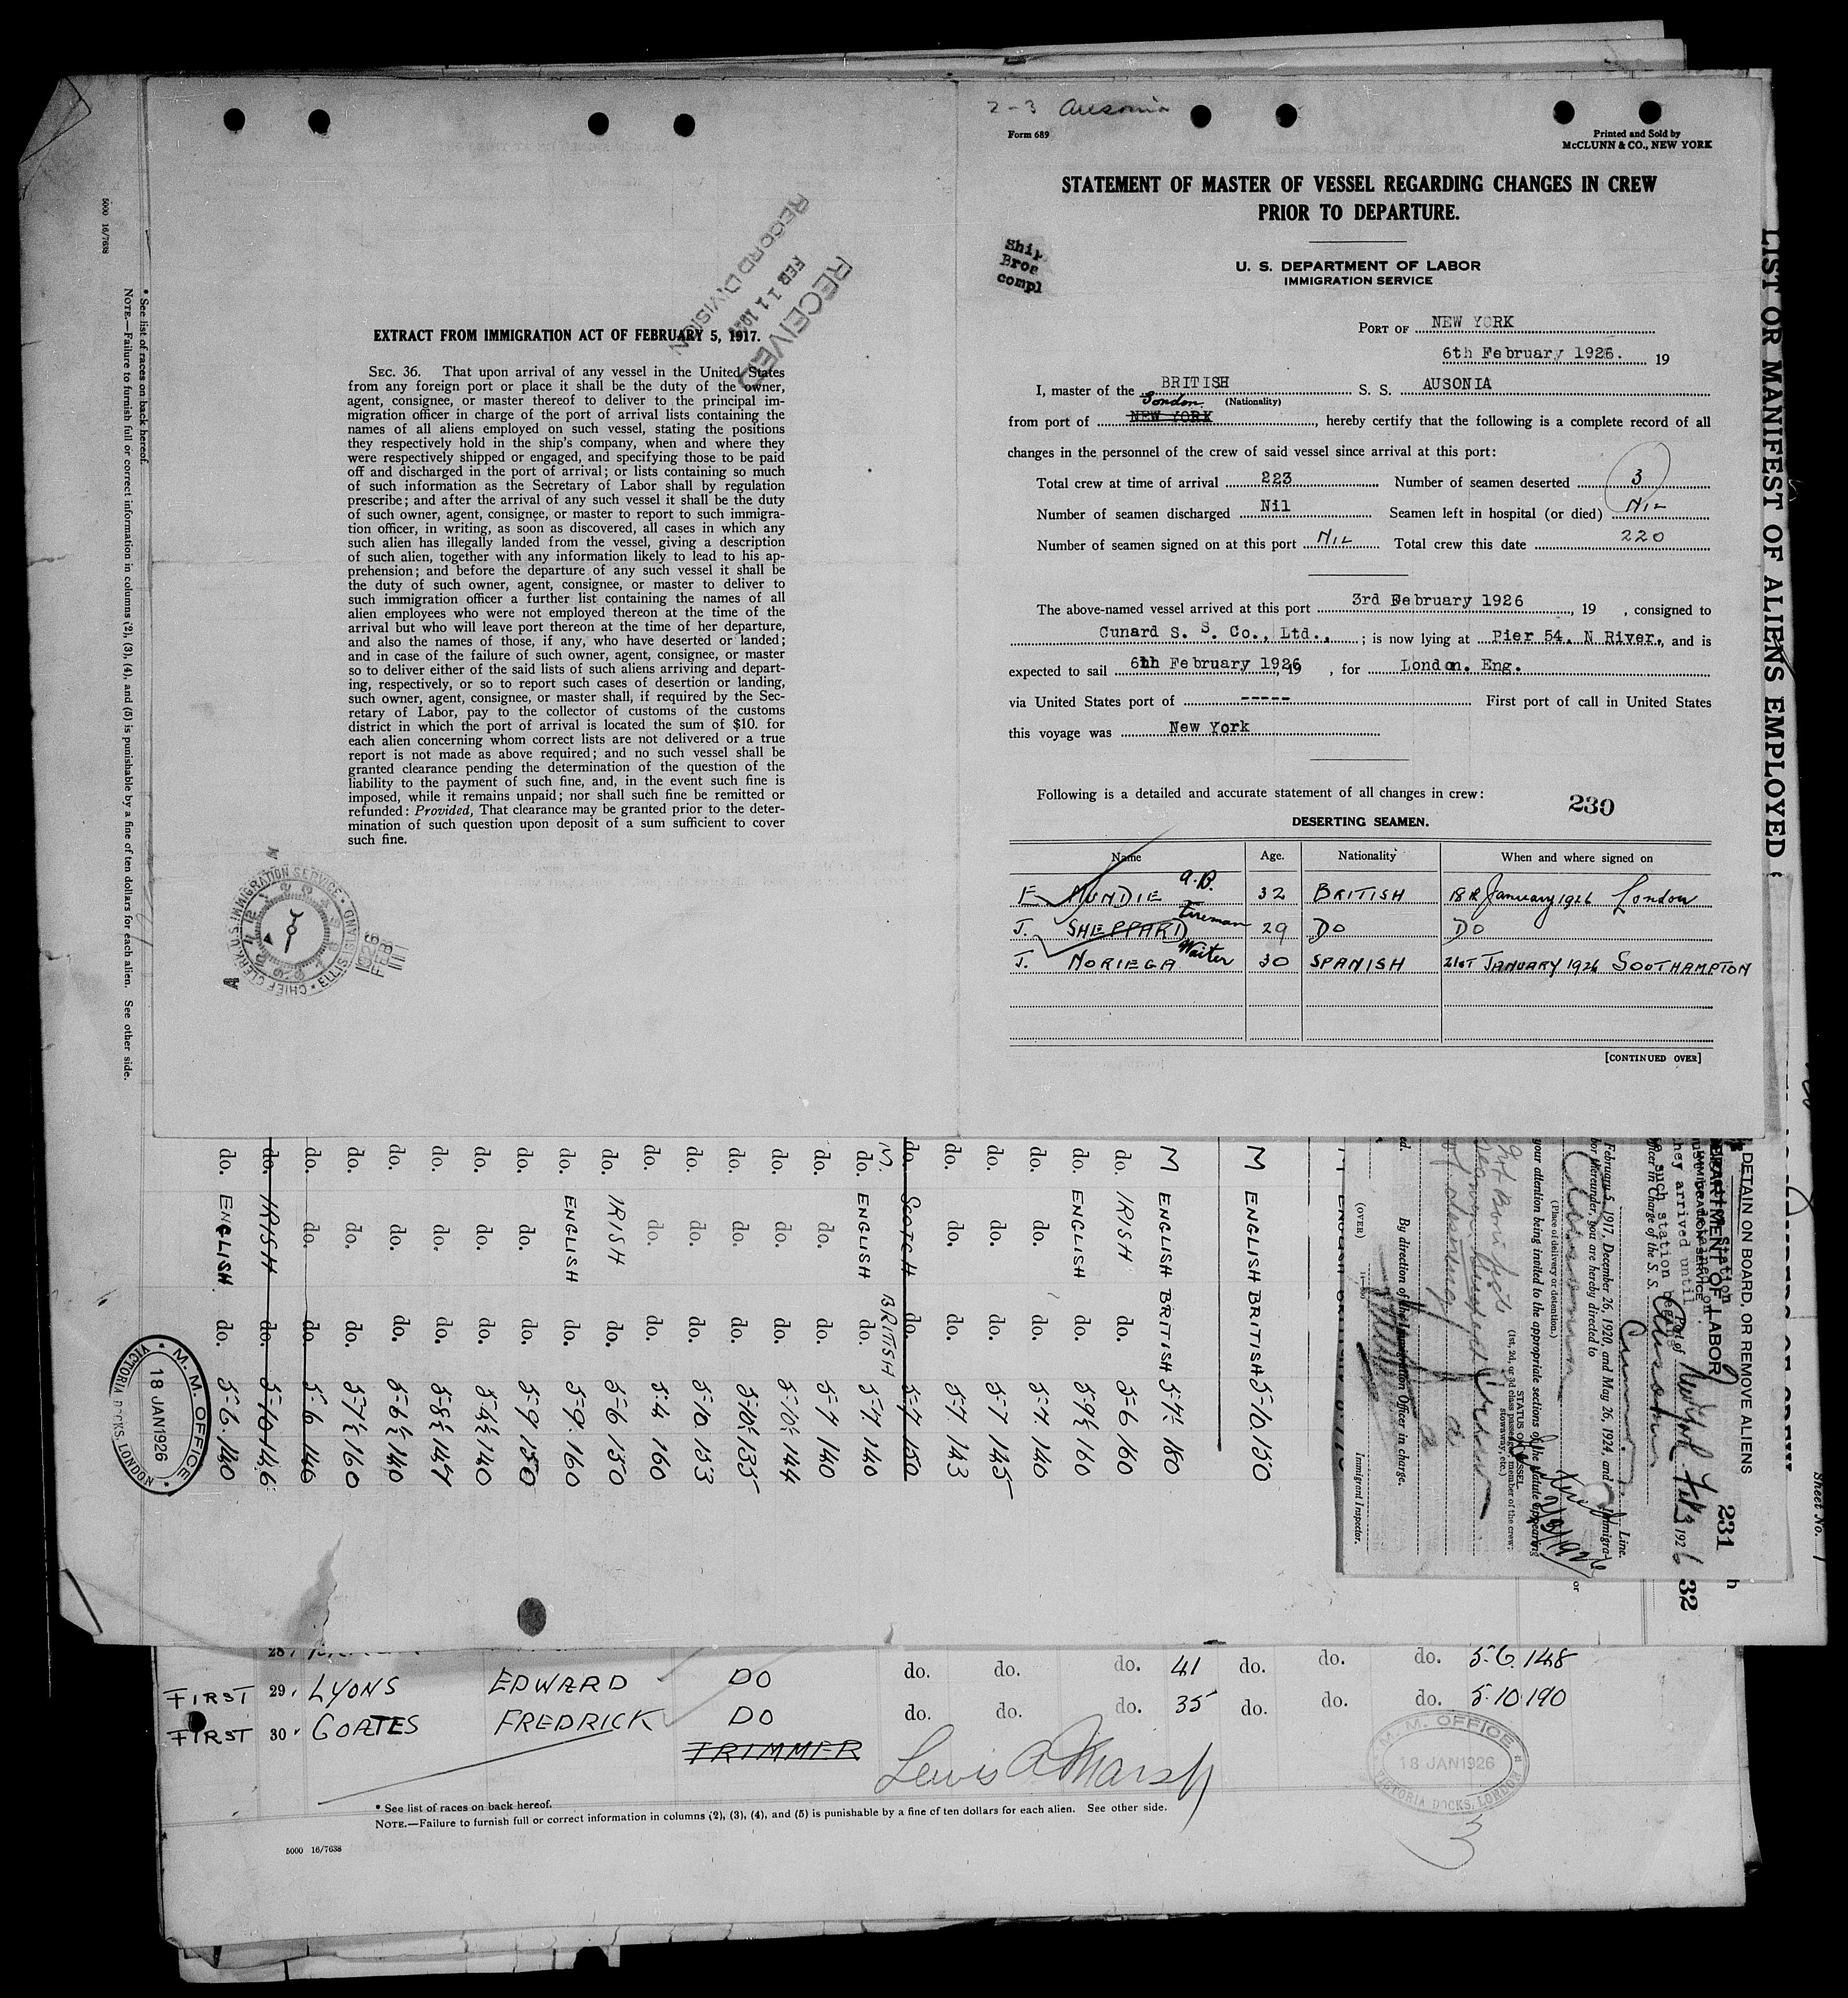 2-3 Ausonia
Form 689
Printed and Sold by
McCLUNN & CO., NEW YORK
STATEMENT OF MASTER OF VESSEL REGARDING CHANGES IN CREW
PRIOR TO DEPARTURE.
Ship
Bros
compl
U. S. DEPARTMENT OF LABOR
IMMIGRATION SERVICE
PORT OF NEW YORK
6th February 1926. 19
I, master of the BRITISH S. S. AUSONIA
(Nationality)
London
from port of NEW YORK, hereby certify that the following is a complete record of all
changes in the personnel of the crew of said vessel since arrival at this port:
Total crew at time of arrival 223 Number of seamen deserted 3
Number of seamen discharged Nil Seamen left in hospital (or died) NIL
Number of seamen signed on at this port NIL Total crew this date 220
The above-named vessel arrived at this port 3rd February 1926, 19 , consigned to
Cunard S. S. Co., Ltd., ; is now lying at Pier 54. N River., and is
expected to sail 6th February 1926, 19 , for London. Eng.
via United States port of ----- First port of call in United States
this voyage was New York
Following is a detailed and accurate statement of all changes in crew:
230
DESERTING SEAMEN.
Name Age. Nationality When and where signed on
E. MUNDIE A.B. 32 BRITISH 18th January 1926 London
J. SHEPPARD Fireman 29 DO DO
J. NORIEGA Waiter 30 SPANISH 21ST JANUARY 1926 SOUTHAMPTON
[CONTINUED OVER]
RECEIVED
FEB 11 192
RECORD DIVISION
EXTRACT FROM IMMIGRATION ACT OF FEBRUARY 5, 1917.
SEC. 36. That upon arrival of any vessel in the United States
from any foreign port or place it shall be the duty of the owner,
agent, consignee, or master thereof to deliver to the principal im-
migration officer in charge of the port of arrival lists containing the
names of all aliens employed on such vessel, stating the positions
they respectively hold in the ship's company, when and where they
were respectively shipped or engaged, and specifying those to be paid
off and discharged in the port of arrival; or lists containing so much
of such information as the Secretary of Labor shall by regulation
prescribe; and after the arrival of any such vessel it shall be the duty
of such owner, agent, consignee, or master to report to such immigra-
tion officer, in writing, as soon as discovered, all cases in which any
such alien has illegally landed from the vessel, giving a description
of such alien, together with any information likely to lead to his ap-
prehension; and before the departure of any such vessel it shall be
the duty of such owner, agent, consignee, or master to deliver to
such immigration officer a further list containing the names of all
alien employees who were not employed thereon at the time of the
arrival but who will leave port thereon at the time of her departure,
and also the names of those, if any, who have deserted or landed;
and in case of the failure of such owner, agent, consignee, or master
so to deliver either of the said lists of such aliens arriving and depart-
ing, respectively, or so to report such cases of desertion or landing,
such owner, agent, consignee, or master shall, if required by the Sec-
retary of Labor, pay to the collector of customs of the customs
district in which the port of arrival is located the sum of $10. for
each alien concerning whom correct lists are not delivered or a true
report is not made as above required; and no such vessel shall be
granted clearance pending the determination of the question of the
liability to the payment of such fine, and, in the event such fine is
imposed, while it remains unpaid; nor shall such fine be remitted or
refunded: Provided, That clearance may be granted prior to the deter-
mination of such question upon deposit of a sum sufficient to cover
such fine.
CHIEF CLERK, U.S. IMMIGRATION SERVICE
ELLIS ISLAND DIVISION
1926 FEB 11
LIST OR MANIFEST OF ALIENS EMPLOYED
Sheet No. 1
DETAIN ON BOARD, OR REMOVE ALIENS
231
32
DEPARTMENT OF LABOR
IMMIGRATION SERVICE
Port of New York Feb 3 1926
hey arrived until
such station
Officer in Charge of the S. S. Ausonia
Cunard Line.
February 5, 1917, December 26, 1920, and May 26, 1924, and Immigra-
bor thereunder, you are hereby directed to
(Place of delivery or detention.)
your attention being invited to the appropriate sections of the statute appearing
STATUS ON VESSEL
(1st, 2d, or 3d class passenger, member of the crew,
stowaway, etc.)
By direction of the Immigration Officer in charge.
Immigrant Inspector.
(OVER)
M ENGLISH BRITISH 5-10. 150
M ENGLISH BRITISH 5-7½ 180
do. IRISH do. 5-6 160
do. ENGLISH do. 5-9½ 160
do. do. do. 5-7. 140
do. do. do. 5-7 145
do. do. do. 5-7. 143
do. SCOTCH do. 5-7 150
M. BRITISH
do. ENGLISH do. 5-7. 140
do. do. do. 5-7 140
do. do. do. 5-10½ 144
do. do. do. 5-10½ 135
do. do. do. 5-10. 153
do. do. do. 5-4. 160
do. IRISH do. 5-6 150
do. ENGLISH do. 5-9. 160
do. do. do. 5-9 150
do. do. do. 5-6½ 140
do. do. do. 5-8½ 147
do. do. do. 5-6½ 140
do. do. do. 5-7½ 160
do. do. do. 5-6 146
do. IRISH do. 5-10 146
do. ENGLISH. do. 5-6. 140
M. M. OFFICE
18 JAN 1926
VICTORIA DOCKS, LONDON
* See list of races on back hereof.
NOTE.—Failure to furnish full or correct information in columns (2), (3), (4), and (5) is punishable by a fine of ten dollars for each alien. See other side.
5000 16/7638
28.
FIRST 29. LYONS EDWARD DO do. do. do. 41 do. do. do. 5.6. 148
FIRST 30. COATES FREDRICK DO do. do. do. 35 do. do. do. 5.10 190
TRIMMER
Lewis A Marsh
M. M. OFFICE
18 JAN 1926
VICTORIA DOCKS, LONDON
3
* See list of races on back hereof.
NOTE.—Failure to furnish full or correct information in columns (2), (3), (4), and (5) is punishable by a fine of ten dollars for each alien. See other side.
5000 16/7638